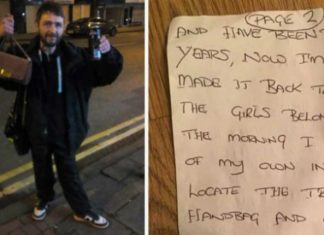 PAGE 2
AND HAVE BEEN
YEARS, NOW I'M
MADE IT BACK T
THE GIRLS BELON
THE MORNING I
OF MY OWN IN
LOCATE THE T
HANDBAG AND